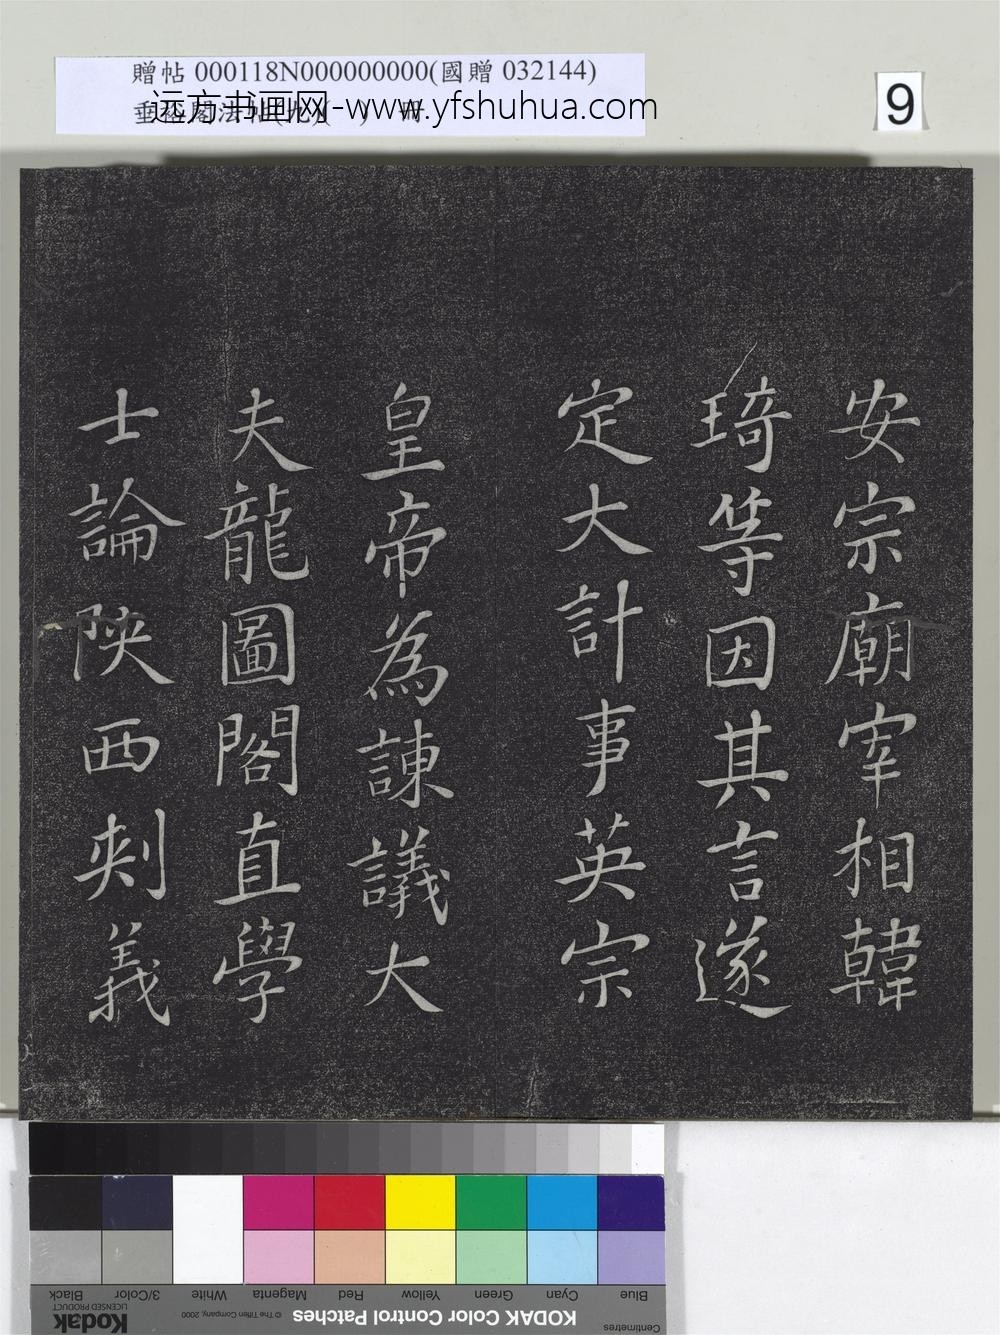 贈帖 000118N000000000(國贈 032144)
远方书画网-www.yfshuhua.com
9
安宗廟宰相韓
琦等因其言遂
定大計事英宗
皇帝為諫議大
夫龍圖閣直學
士論陝西刺義
Black
3/Color
White
Magenta
Red
Yellow
Green
Cyan
Blue
Kodak
LICENSED PRODUCT
© The Tiffen Company, 2000
KODAK Color Control Patches
Centimetres